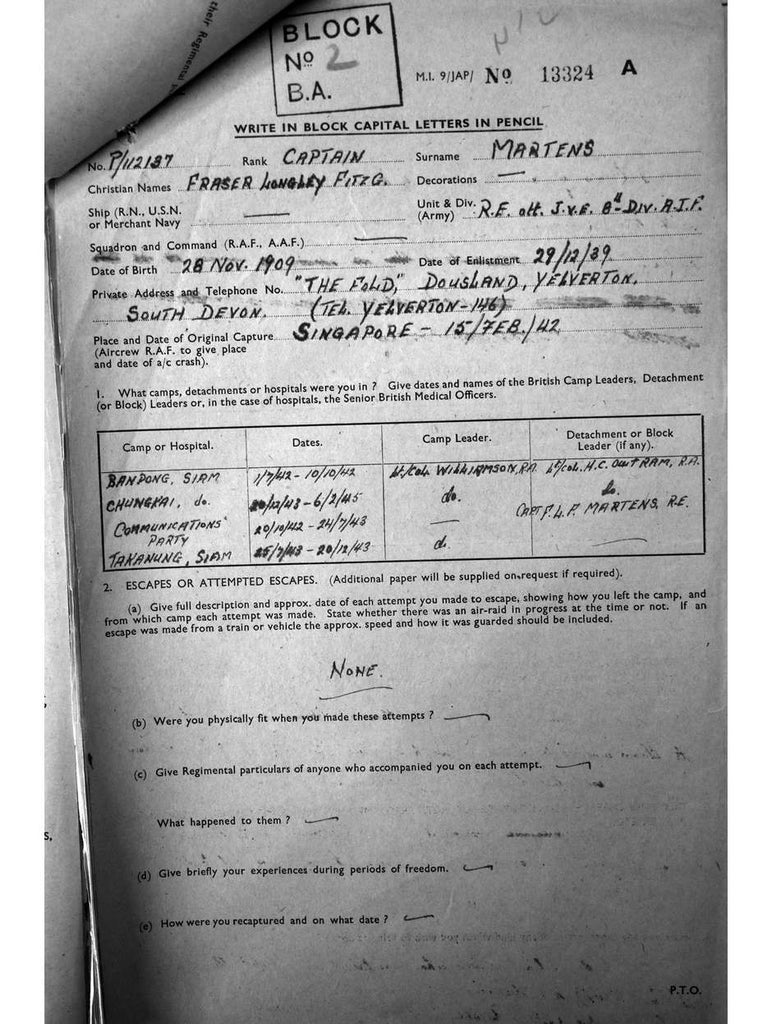 their Regimental
BLOCK
No 2
B.A.
M.I. 9/JAP/ No 13324 A
WRITE IN BLOCK CAPITAL LETTERS IN PENCIL
No. P/112137 Rank CAPTAIN Surname MARTENS
Christian Names FRASER LONGLEY FITZG. Decorations —
Ship (R.N., U.S.N. or Merchant Navy — Unit & Div. (Army) R.E. att. J.V.E. 8th DIV. A.I.F.
Squadron and Command (R.A.F., A.A.F.) —
Date of Birth 28 NOV. 1909 Date of Enlistment 29/12/39
Private Address and Telephone No. "THE FOLD," DOUSLAND, YELVERTON,
SOUTH DEVON. (TEL. YELVERTON-146)
Place and Date of Original Capture SINGAPORE – 15/FEB./42
(Aircrew R.A.F. to give place
and date of a/c crash).
1. What camps, detachments or hospitals were you in ? Give dates and names of the British Camp Leaders, Detachment
(or Block) Leaders or, in the case of hospitals, the Senior British Medical Officers.
Camp or Hospital. Dates. Camp Leader. Detachment or Block Leader (if any).
BANPONG, SIAM 1/7/42 - 10/10/42 Lt/Col. WILLIAMSON, RA Lt/Col. H.C. OUTRAM, R.A.
CHUNGKAI, do. 20/12/43 - 6/2/45 do. do.
COMMUNICATIONS PARTY 20/10/42 - 24/7/43 — CAPT F.L.F. MARTENS, R.E.
TAKANUNG, SIAM 25/7/43 - 20/12/43 d. —
2. ESCAPES OR ATTEMPTED ESCAPES. (Additional paper will be supplied on request if required).
(a) Give full description and approx. date of each attempt you made to escape, showing how you left the camp, and
from which camp each attempt was made. State whether there was an air-raid in progress at the time or not. If an
escape was made from a train or vehicle the approx. speed and how it was guarded should be included.
NONE.
(b) Were you physically fit when you made these attempts ? —
(c) Give Regimental particulars of anyone who accompanied you on each attempt. —
What happened to them ? —
(d) Give briefly your experiences during periods of freedom. —
(e) How were you recaptured and on what date ? —
S,
P.T.O.